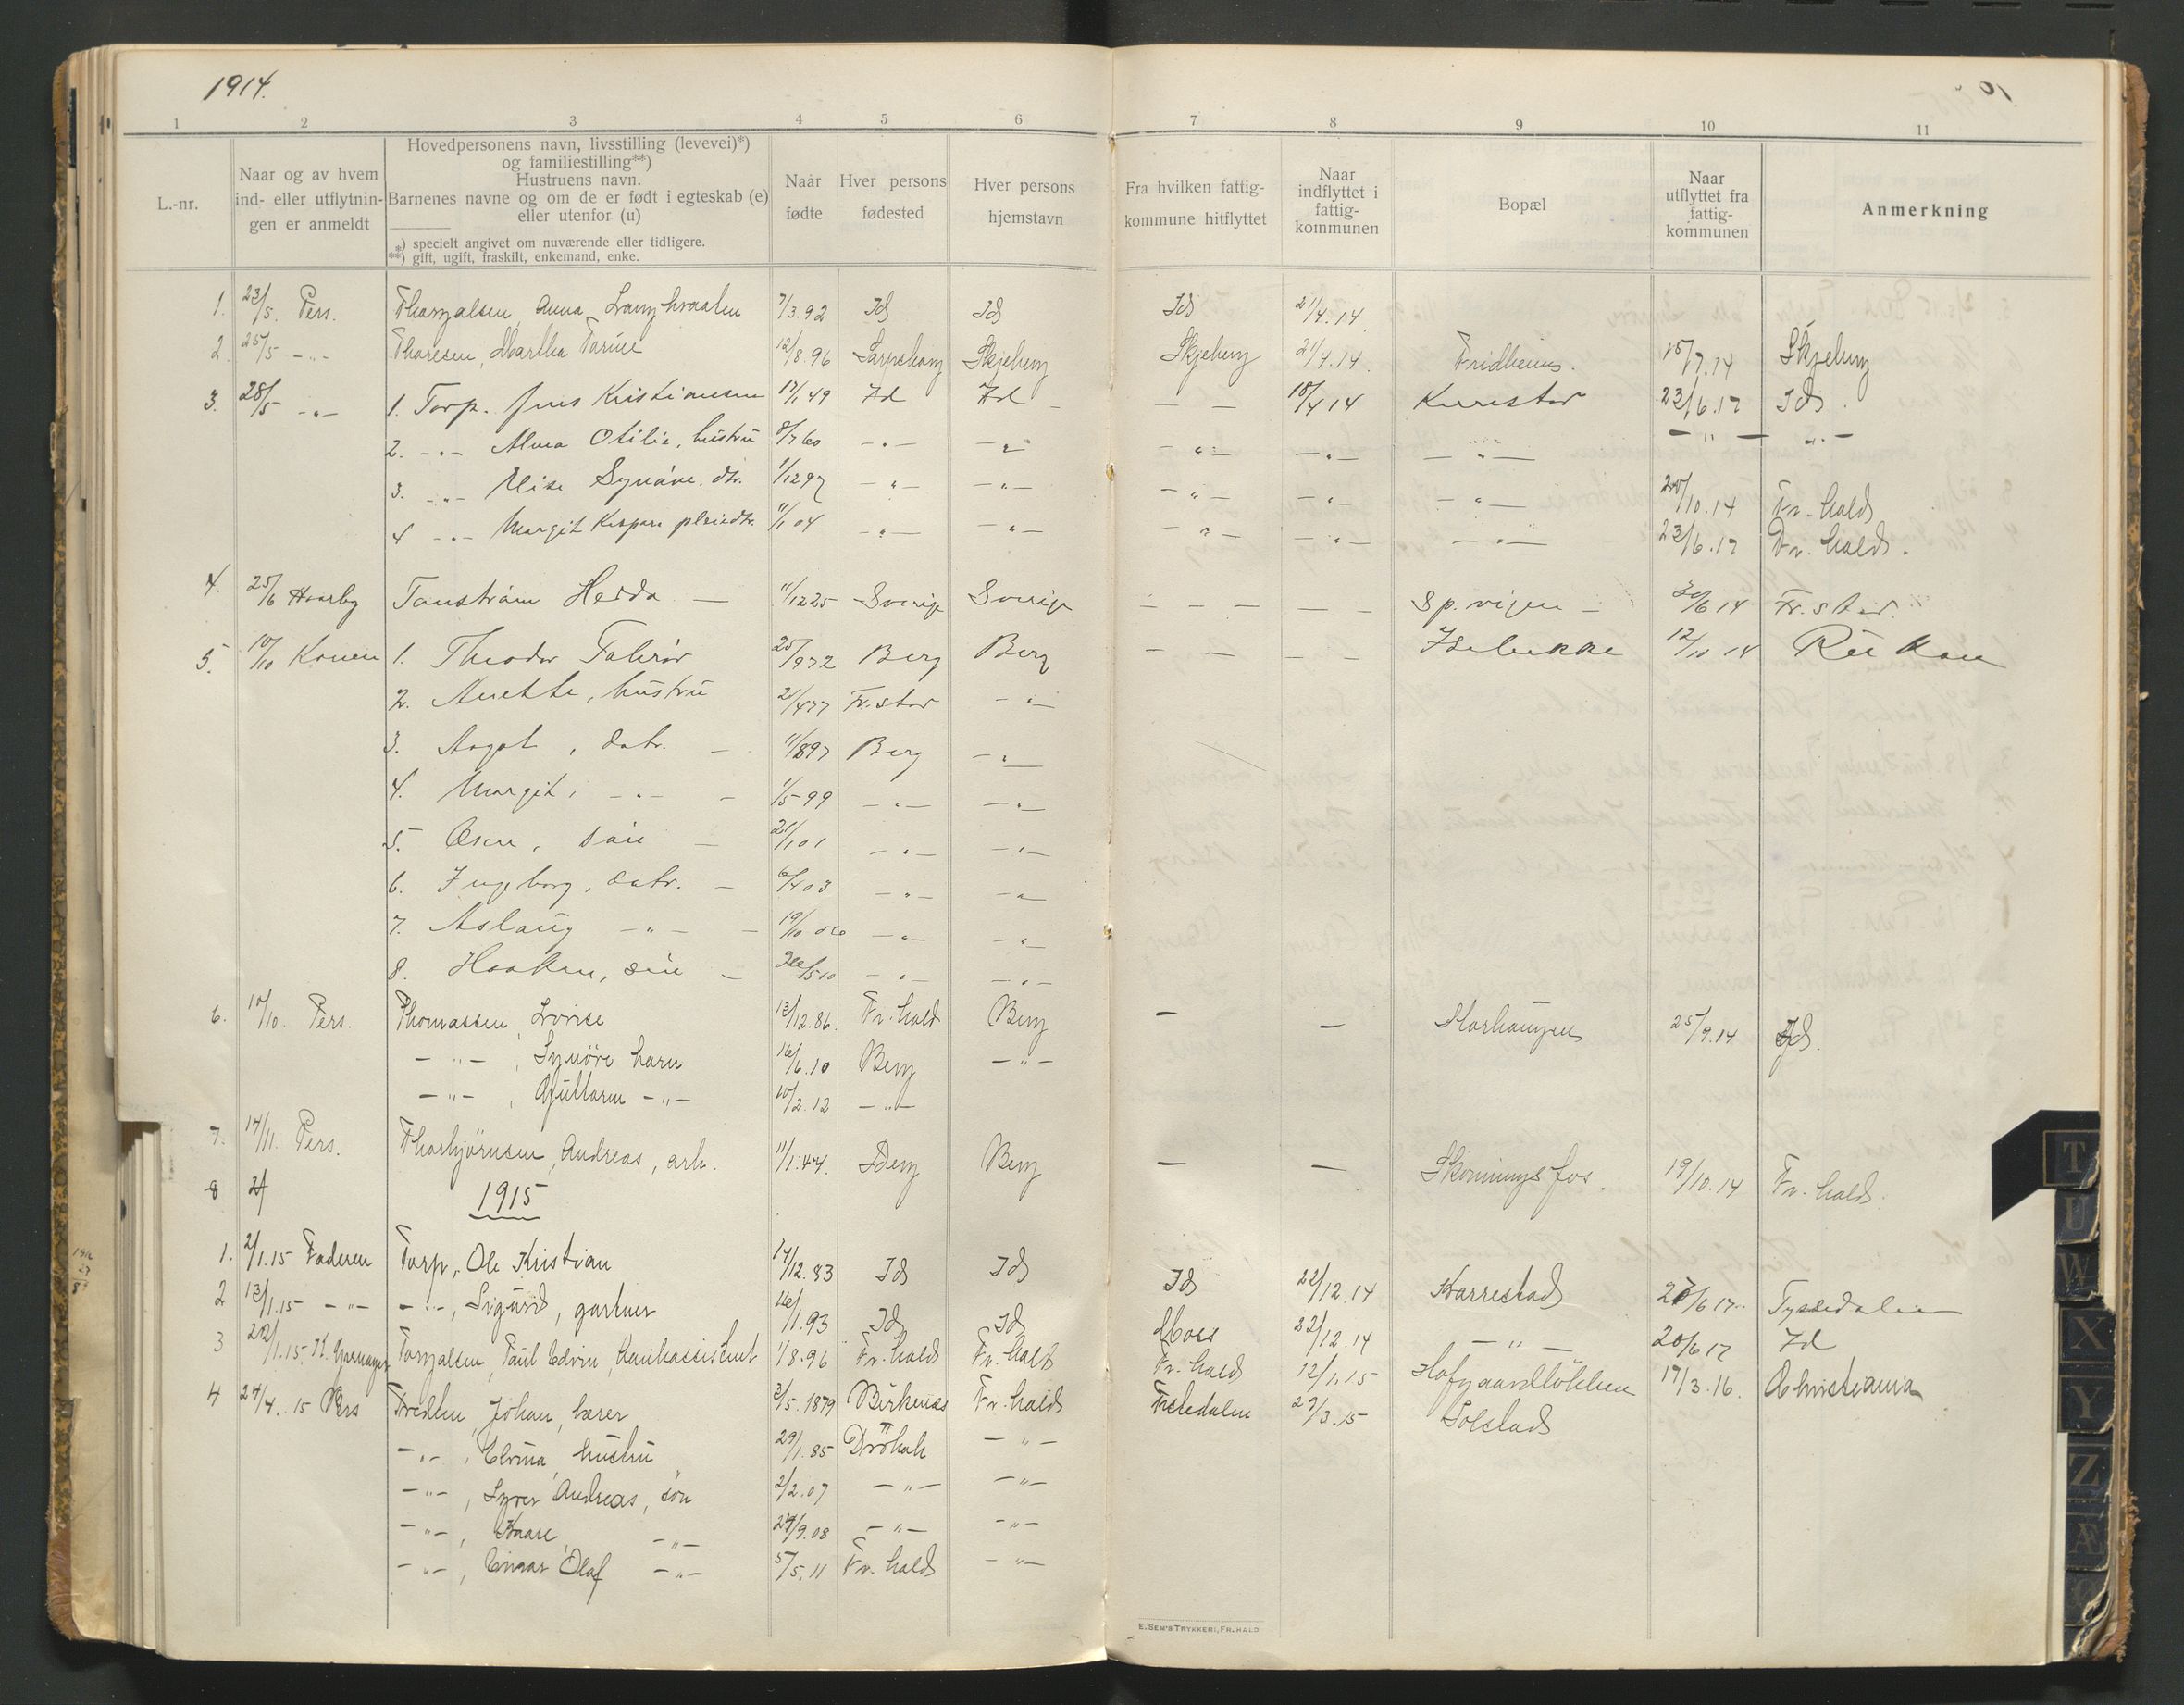 1914.
1 2 3 4 5 6 7 8 9 10 11
L.-nr.
Naar og av hvem
ind- eller utflytnin-
gen er anmeldt
Hovedpersonens navn, livsstilling (levevei)*)
og familiestilling**)
Hustruens navn.
Barnenes navne og om de er født i egteskab (e)
eller utenfor (u)
*) specielt angivet om nuværende eller tidligere.
**) gift, ugift, fraskilt, enkemand, enke.
Naar
fødte
Hver persons
fødested
Hver persons
hjemstavn
Fra hvilken fattig-
kommune hitflyttet
Naar
indflyttet i
fattig-
kommunen
Bopæl
Naar
utflyttet fra
fattig-
kommunen
Anmerkning
1. 23/5. Pers. Anna 7/3.92 Ids Ids Ids 21/4.14.
2. 25/5 -"- Thoresen, Martha 12/8.96 Sarpsborg Skjeberg Skjeberg 21/4.14. Fridheim. 15/7.14 Skjeberg
3. 28/5 -"- 1. Torp. Jens Kristiansen 17/1 49 Id Id — — 18/4 14 23/6.17 Ids.
2. -"- Alma Otilie, hustru 8/7 60 -"- -"- -"- -"- -"- -"- -"-
3. -"- dtr. 1/12 97 -"- -"- -"- -"- -"- 20/10.14 Fr. halds
4 -"- Margit pleiedtr. 11/1 04 -"- -"- -"- -"- -"- 23/6.17 Fr. halds.
4. 25/6 Haarby Hedda — 11/12 25 Sverige Sverige — — — — — Sp.vigen — 30/6 14 Fr. stad
5. 10/10 Konen 1. Theodor 25/9 72 Berg Berg — — — — Isebakke 12/11 14 Rukan
2. Anette, hustru 21/4 77 Fr. stad -"-
3. Aagot, datr. — 11/8 97 Berg -"-
4. Margit, -"- — 1/5 99 -"- -"-
5. søn — 21/1 01 -"- -"-
6. Ingeborg, datr. — 6/4 03 -"- -"-
7. Aslaug -"- — 19/10 06 -"- -"-
8. Haakon, søn — /5 10 -"- -"-
6. 10/10. Pers. Thomassen, Lovise 13/12.86. Fr. hald Berg — — 25/9.14 Ids.
-"-, Synöve barn 16/6.10 Berg -"-
-"-, Guttorm -"- 10/2.12 -"-
7. 14/11. Pers. Thorbjørnsen, Andreas, arb. 11/1.44. Berg Berg — — Skonningsfos. 19/10.14 Fr. halds.
8
1915
1. 2/1.15 Faderen Torp, Ole Kristian 14/12.83 Ids Ids Ids 22/12.14 Karrestad 27/6 17. Tyssedalen
2 13/1.15 -"- -"-, Sigurd, gartner 16/1.93 Ids Ids Moss 22/12.14 -"- 20/6 17 Id
3 22/1.15. Paul Edvin, Bankassistent 1/8.96 Fr. halds Fr. halds Fr. halds 12/1.15 Hofgaardløkken 17/3.16. Christiania
4 24/4. 15 Pers Johan, lærer 3/5.1879 Birkenes Fr. halds Tistedalen 27/3.15 Solstad
-"-, Elvina, hustru 29/1.85 Dröbak -"-
-"-, Syver Andreas, søn 2/2.07 -"- -"-
-"-, Kaare, -"- 24/9.08 -"- -"-
-"-, Einar Olaf -"- 5/5.11 Fr. halds -"-
E. SEM'S TRYKKERI, FR.HALD
T
U
W
X
Y
Z
Æ